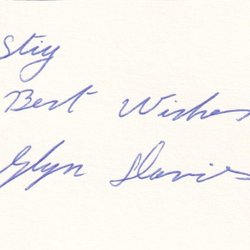 Stig
Best Wishes
Glyn Davies